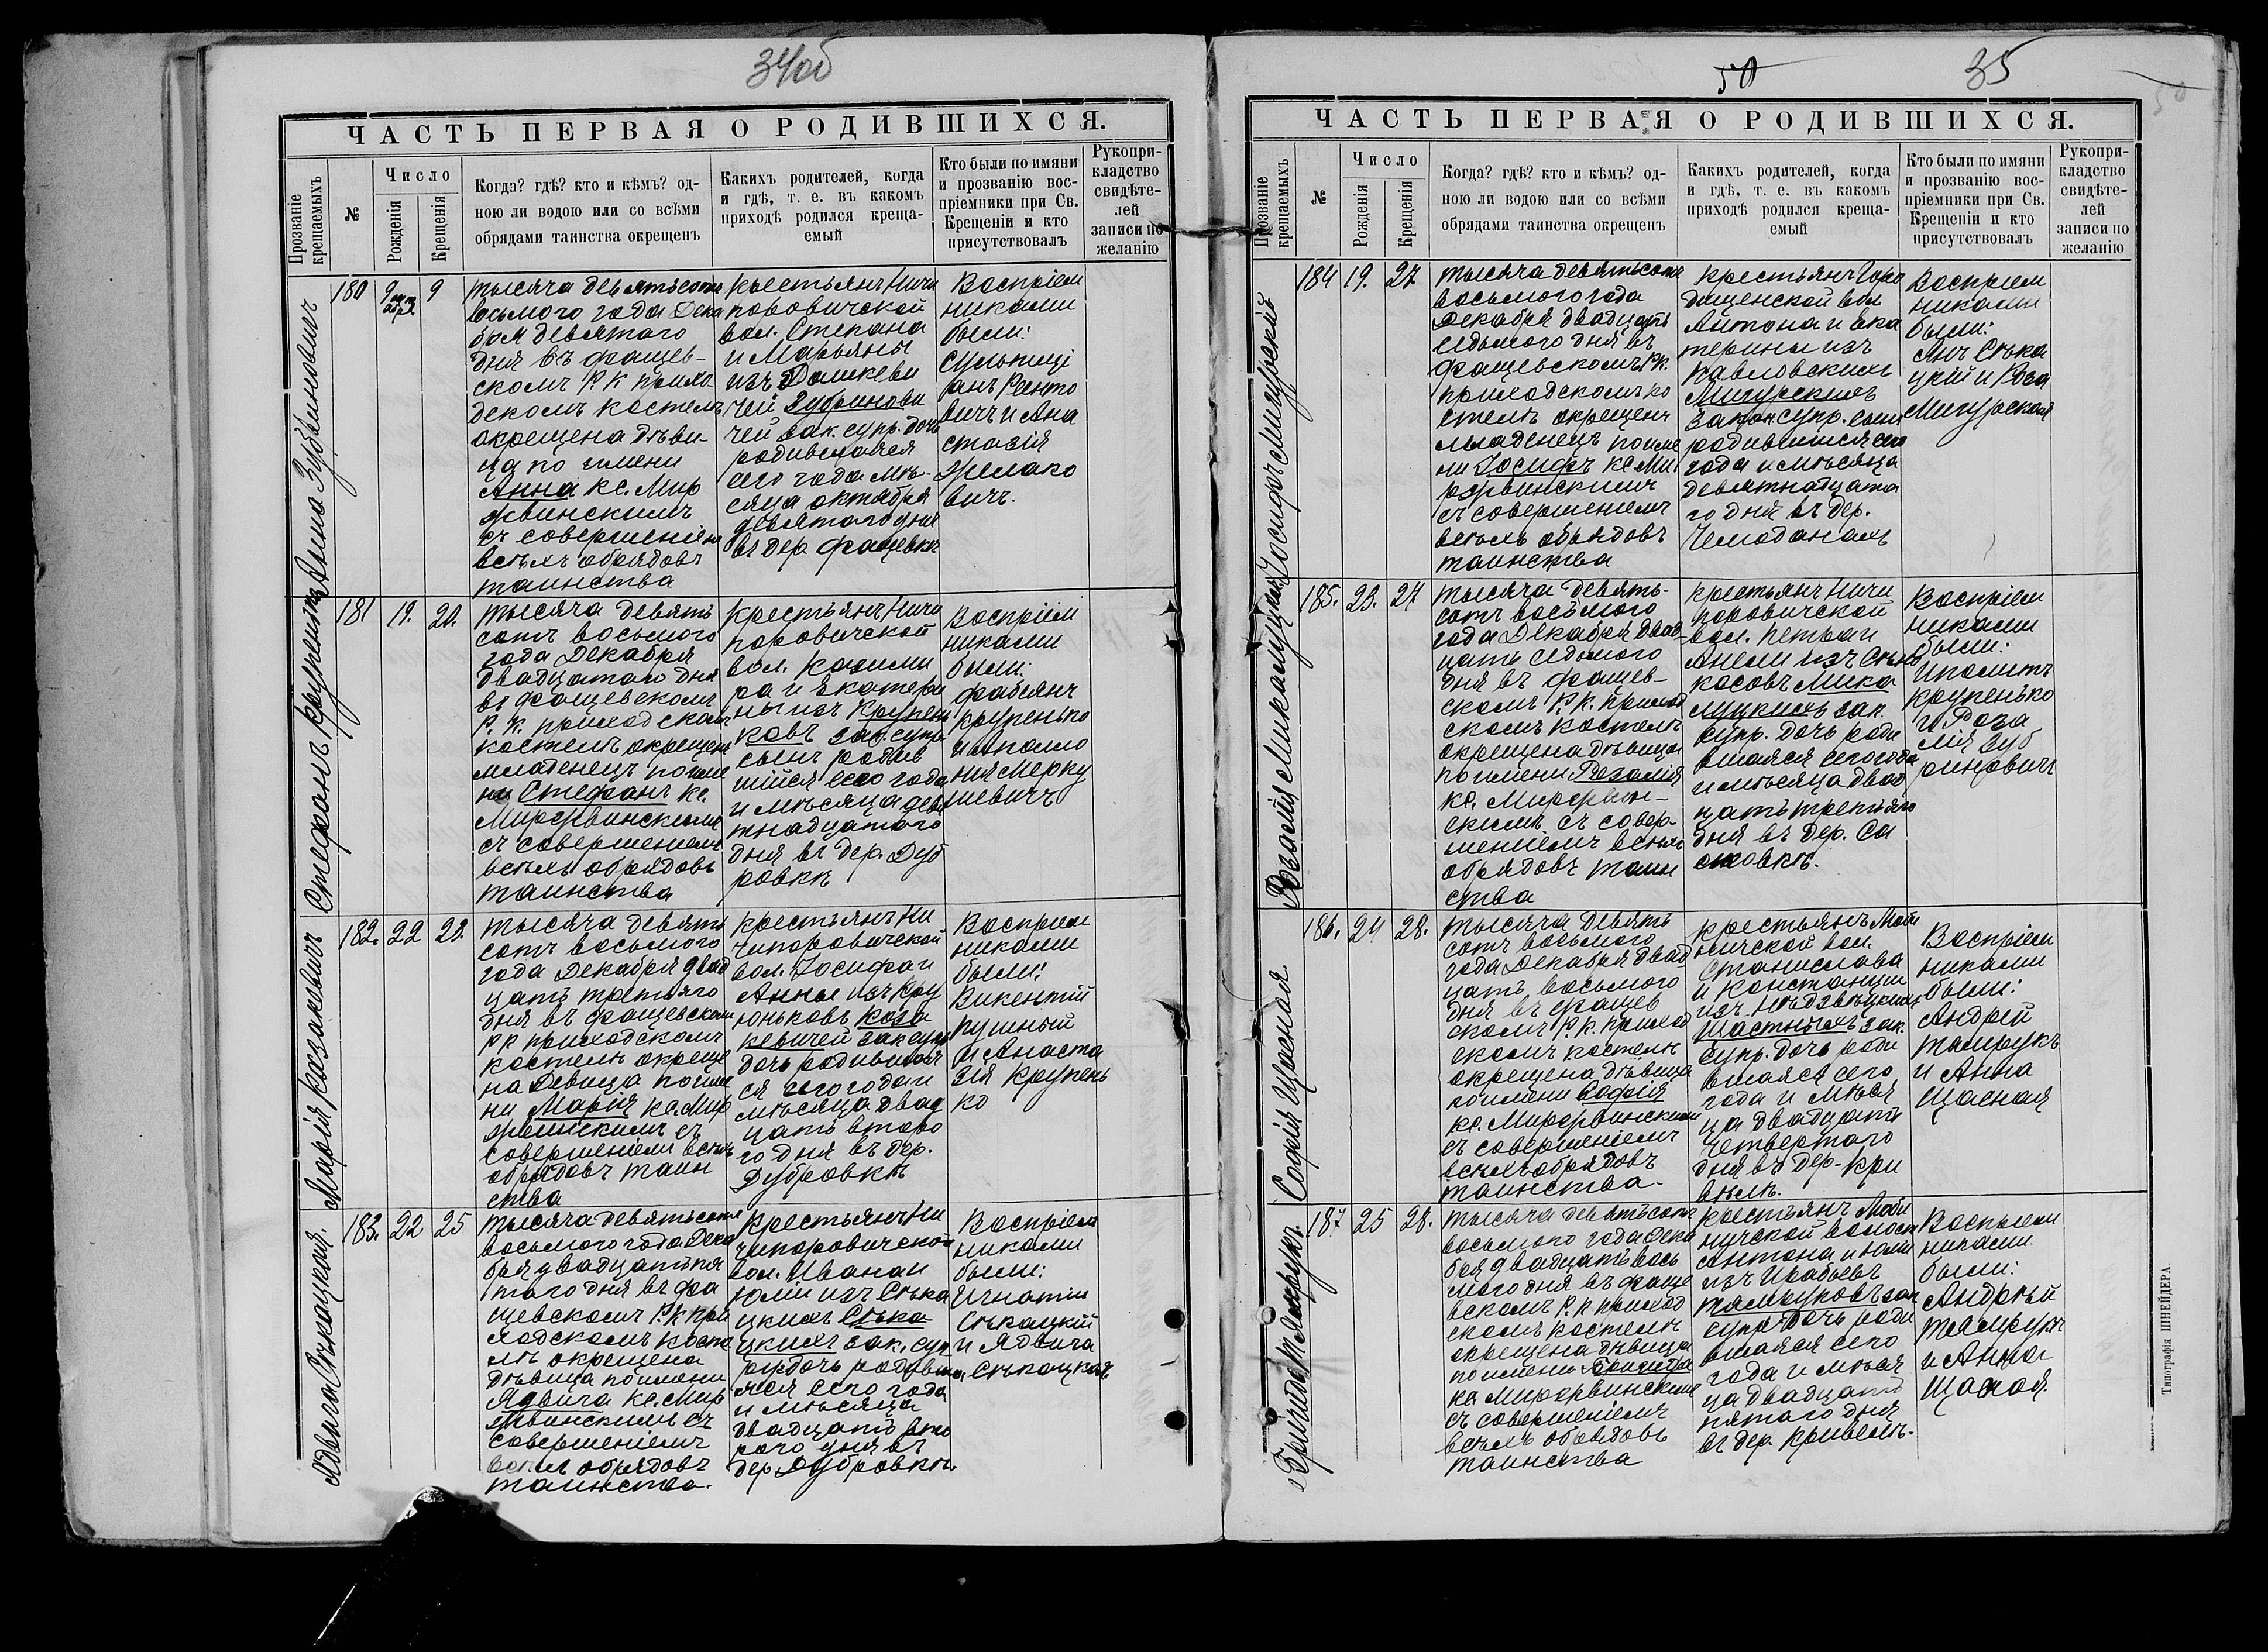 34об
ЧАСТЬ ПЕРВАЯ О РОДИВШИХСЯ.
Прозваніе крещаемыхъ
№
Число
Рожденія
Крещенія
Когда? гдѣ? кто и кѣмъ? од-
ною ли водою или со всѣми
обрядами таинства окрещенъ
Какихъ родителей, когда
и гдѣ, т. е. въ какомъ
приходѣ родился креща-
емый
Кто были по имяни
и прозванію вос-
пріемники при Св.
Крещеніи и кто
присутствовалъ
Рукопри-
кладство
свидѣте-
лей
записи по
желанію
Анна Зубриновичъ
180
9
9
тысяча девятьсотъ
восьмого года Дека
бря девятаго
дня въ Фащев-
скомъ Р К прихо
дскомъ костелѣ
окрещена дѣви-
ца по имени
Анна кс. Мир
жвинскимъ
съ совершеніемъ
всѣхъ обрядовъ
таинства
крестьянъ Ничи
поровичской
вол. Степана
и Марьяны
изъ Дашкеви
чей Зубринови
чей зак. супр. дочь
родившаяся
сего года мѣ-
сяца октября
девятаго дня
въ дер. Фащевкѣ
Воспріем
никами
были:
Сульпиці
анъ
вичъ и Ана
стазія
Жмако
вичъ.
Стефанъ Крупенько
181
19.
20.
тысяча девять
сотъ восьмого
года Декабря
двадцатаго дня
въ Фащевскомъ
Р. К. приходскомъ
костелѣ окрещенъ
младенецъ по име
ни Стефанъ кс.
Миржвинскимъ
съ совершеніемъ
всѣхъ обрядовъ
таинства
крестьянъ Ничи
поровичской
вол. Казими
ра и Екатери
ны изъ Крупень
ковъ зак. супр.
сынъ родив
шійся сего года
и мѣсяца девя
тнадцатого
дня въ дер. Дуб
ровкѣ
Воспріем
никами
были:
Фабіянъ
Крупенько
и Аполло
нія Мерку
шевичъ
Марія Козакевичъ
182.
22
23.
тысяча девять
сотъ восьмого
года Декабря двад
цать третьяго
дня въ Фащевскомъ
Р К приходскомъ
костелѣ окреще
на девица по име
ни Марія кс. Мир
жвинскимъ съ
совершеніемъ всѣхъ
обрядовъ таин
ства
крестьянъ Ни
чипоровичской
вол. Іосифа и
Анны изъ Кру
пеньковъ Коза
кевичей зак супр
дочь родившая
ся сего года и
мѣсяца двад
цать второ
го дня въ дер.
Дубровкѣ
Воспріем
никами
были:
Викентій
Пушный
и Анаста
зія Крупень
ко
Ядвига Стѣкацкая.
183.
22
25
тысяча девятьсотъ
восьмого года Дека
бря двадцать пя
того дня въ Фа
щевскомъ Р. К при
ходскомъ косте
лѣ окрещена
дѣвица по имени
Ядвига кс. Мир
жвинскимъ съ
совершеніемъ
всѣхъ обрядовъ
таинства.
Крестьянъ Ни
чипоровичской
вол. Ивана и
Юліи изъ Стѣка
цкихъ Стѣка
цкихъ зак. суп
рж дочь родивша
яся сего года
и мѣсяца
двадцать вто
рого дня въ
дер Дубровкѣ
Воспріем
никами
были:
Игнатій
Стѣкацкій
и Ядвига
Стѣкацкая
50
35
ЧАСТЬ ПЕРВАЯ О РОДИВШИХСЯ.
Прозваніе крещаемыхъ
№
Число
Рожденія
Крещенія
Когда? гдѣ? кто и кѣмъ? од-
ною ли водою или со всѣми
обрядами таинства окрещенъ
Какихъ родителей, когда
и гдѣ, т. е. въ какомъ
приходѣ родился креща-
емый
Кто были по имяни
и прозванію вос-
пріемники при Св.
Крещеніи и кто
присутствовалъ
Рукопри-
кладство
свидѣте-
лей
записи по
желанію
Іосифъ Мигурскій
184
19.
27
тысяча девятьсотъ
восьмого года
Декабря двадцать
седьмого дня въ
Фащевскомъ Р. К.
приходскомъ ко
стелѣ окрещенъ
младенецъ по име
ни Іосифъ кс. Ми
ржвинскимъ
съ совершеніемъ
всѣхъ обрядовъ
таинства
крестьянъ Горо
дищенской вол
Антона и Ека
терины изъ
Павловскихъ
Мигурскихъ
закон. супр. сынъ
родившійся сего
года и мѣсяца
девятнадцата
го дня въ дер.
Чемоданахъ
Воспріем
никами
были:
Янъ Стѣка
цкій и Роза
Мигурская
Розалія Микалуцкая
185.
23.
27
тысяча девять-
сотъ восьмого
года Декабря двад-
цать седьмого
дня въ Фащев-
скомъ Р. К. приход
скомъ костелѣ
окрещена дѣвица
по имени Розалія
кс. Миржвин-
скимъ съ совер-
шеніемъ всѣхъ
обрядовъ таин
ства
крестьянъ Ничи
поровичской
вол. Петра и
Анели изъ
косовъ Мика
луцкихъ зак.
супр. дочь роди
вшаяся сего года
и мѣсяца двад
цать третьяго
дня въ дер. Со
сновкѣ.
Воспріем
никами
были:
Иполитъ
Крупенько
и Роза
лія Зуб
риновичъ
Софія Щасная.
186.
24
28.
тысяча девять
сотъ восьмого
года Декабря двад-
цать восьмого
дня въ Фащев
скомъ Р. К. приход
скомъ костелѣ
окрещена дѣвица
по имени Софія
кс. Миржвинскимъ
съ совершеніемъ
всѣхъ обрядовъ
таинства.
крестьянъ
вол.
Станислава
и Констанціи
изъ Недзвѣцкихъ
Щастныхъ зак.
супр. дочь роди
вшаяся сего
года и мѣся
ца двадцать
четвертаго
дня въ дер. Кри
вѣлѣ.
Воспріем
никами
были:
Андрей
Тамрукъ
и Анна
Щасная
187
25
28.
тысяча девятьсотъ
восьмого года Дека
бря двадцать вось
мого дня въ Фаще
вскомъ Р. К приход
скомъ костелѣ
окрещена дѣвица
по имени Бригида
кс. Миржвинскимъ
съ совершеніемъ
всѣхъ обрядовъ
таинства
крестьянъ
Антона и Юліи
изъ
супр. дочь роди
вшаяся сего
года и мѣся
ца двадцать
пятаго дня
въ дер. Кривелѣ.
Воспріем
никами
были:
Андрей
Тамрукъ
и Анна
Щасная.
Типографія ШНЕЙДЕРА